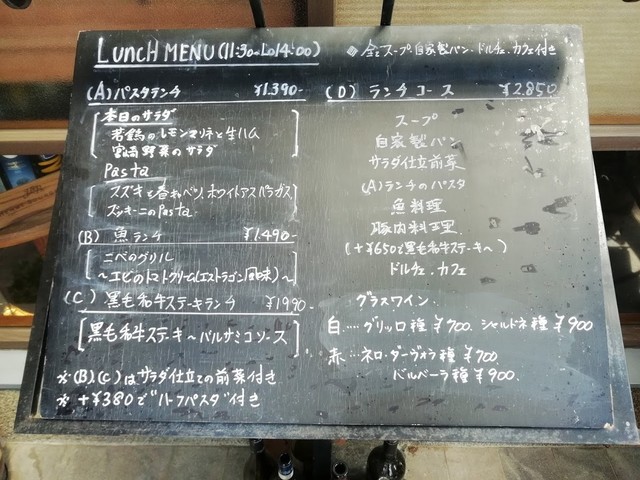 LUNCH MENU (11:30~L.O14:00)
◆ 全てスープ.自家製パン.ドルチェ.カフェ付き
(A) パスタランチ ¥1.390-
本日のサラダ
若鶏のレモンマリネと生ハム
宮崎野菜のサラダ
Pasta
スズキと春キャベツ、ホワイトアスパラガス
ズッキーニのPasta
(B) 魚ランチ ¥1.490-
ニベのグリル
～エビのトマトクリーム(エストラゴン風味)～
(C) 黒毛和牛ステーキランチ ¥1990-
黒毛和牛ステーキ～バルサミコソース
※(B).(C)はサラダ仕立ての前菜付き
※ +¥380で"ハーフパスタ"付き
(D) ランチコース ¥2.850
スープ
自家製パン
サラダ仕立前菜
(A)ランチのパスタ
魚料理
豚肉料理
(+¥650で黒毛和牛ステーキへ)
ドルチェ.カフェ
グラスワイン.
白....グリッロ種 ¥700. シャルドネ種 ¥900
赤...ネロ・ダーヴォラ種 ¥700
バルベーラ種 ¥900.